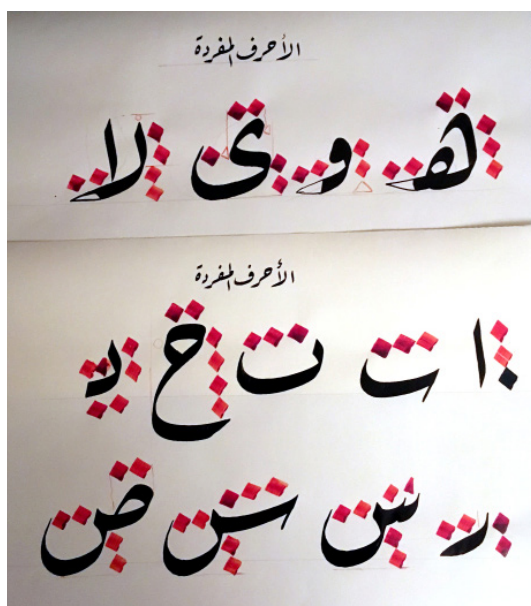 الأحرف المفردة
ه و ى لا
الأحرف المفردة
ا ب ب ح د
ر س س ص